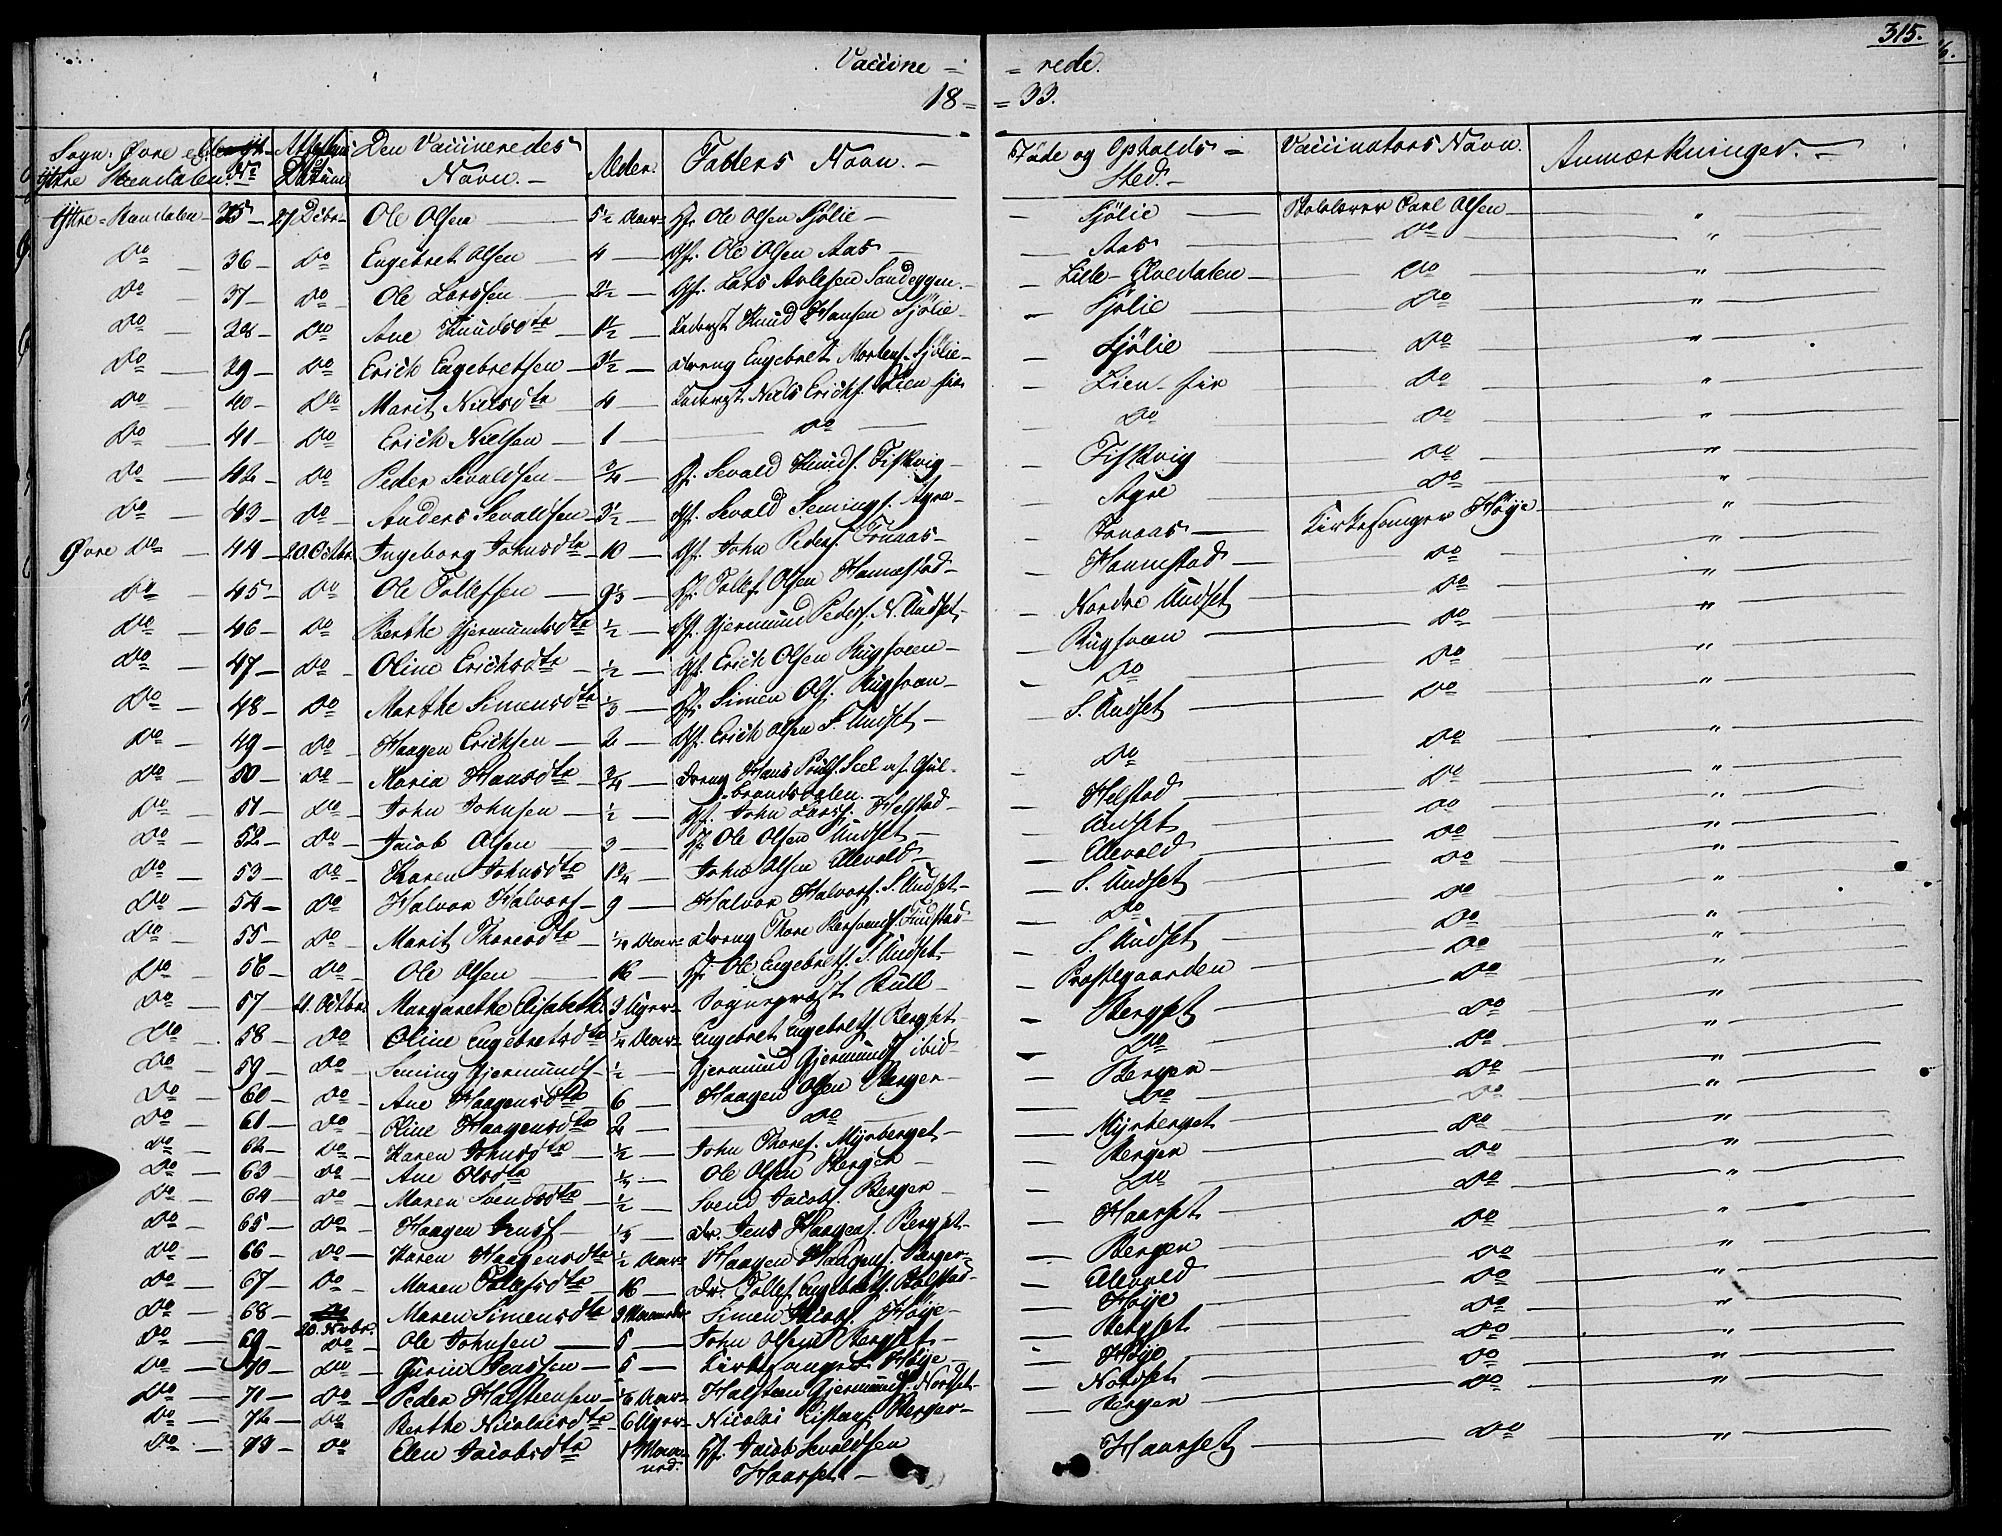 315.
Vaccine = = rede.
18 = = 33.
Sogn. Øvre eller Ytre Rendalen. No Attestens Datum Den Vaccineredes Navn. — Alder. Faders Navn. — Føde og Opholds Sted. — Vaccinators Navn. Anmærkninger. —
Ytre-Rendalen — 35 — 27 Octbr — Ole Olsen — 5½ Aar — Gf. Ole Olsen Sjølie — Sjølie — Carl Olsen — "
Do — 36 — Do Engebret Olsen — 4 — Gf. Ole Olsen Aas — Aas — Do — "
Do — 37 — Do Ole Larssen — 2½ — Gf. Lars Sandeggen. — Lille-Elvedalen — Do — "
Do — 38 — Do Ane Knudsdtr — 1½ — Inderst Knud Hansen Sjølie — Sjølie — Do — "
Do — 39 — Do Erich Engebretsen — 3½ — dreng Engebret Mortens. Sjølie — Sjølie — Do — "
Do — 40 — Do Marit Nielsdtr — 4 — Inderst Niels Erichs. Lien — Lien — Do — "
Do — 41 — Do Erich Nielsen — 1 — Do — Do — Do — "
Do — 42 — Do Peder Sevaldsen — ¾ — Gf. Sevald Knuds. Fiskvig — Fiskvig — Do — "
Do — 43 — Do Anders Sevaldsen — 3½ — Gf. Sevald Semings. Agre — Agre — Do — "
Øvre Do — 44 — 20. Octbr. Ingeborg Johnsdtr — 10 — Gf. John Peders. Fonaas — Fonaas — Kirkesanger Høye — "
Do — 45 — Do Ole Tollefsen — 9⅓ — Gf. Tollef Olsen Hornestad — Hornestad — Do — "
Do — 46 — Do Berthe Gjermundsdtr ½ — Gf. Gjermund Peders. N. Undset — Nordre Undset — Do — "
Do — 47 — Do Oline Erichsdtr — ½ — Gf. Erich Olsen Rugsveen — Rugsveen — Do — "
Do — 48 — Do Marthe Simensdtr ⅓ — Gf. Simen Ols. Rugsveen — Do — Do — "
Do — 49 — Do Haagen Erichsen — 2 — Gf. Erich Olsen S. Undset — S. Undset — Do — "
Do — 50 — Do — Maria Hansdtr ¾ — dreng Hans Gulbrandsdalen — Do — Do — "
Do — 51 — Do — John Johnsen — ½ — Gf. John Larss. Helstad — Helstad — Do — "
Do — 52 — Do — Jacob Olsen — 3 — Gf. Ole Olsen Undset — Undset — Do — "
Do — 53 — Do — Karen Johnsdtr 1¾ — John Olsen Ellevold — Ellevold — Do — "
Do — 54 — Do Halvor Halvors. — 9 — Halvor Halvors. S. Undset — S. Undset — Do — "
Do — 55 — Do — Marit Thoresdtr — Aar — dreng Thore — Do — Do — "
Do — 56 — Do — Ole Olsen — 16 — Gf. Ole Engebrets. S. Undset — S. Undset — Do — "
Do — 57 — 21. Octbr. Margarethe Elisabeth. 3 Uger — Sogneprest Bull — Præstegaarden — Do — "
Do — 58 — Do Oline Engebretsdtr Aar — Engebret Engebrets. Bergset — Bergset — Do — "
Do — 59 — Do — Seming Gjermunds. — ½ — Gjermund Gjermunds. ibid — Do — Do — "
Do — 60 — Do — Ane Haagensdtr 6 — Haagen Olsen Berger — Berger — Do — "
Do — 61 — Do — Oline Haagensdtr 2 — Do — Do — Do
Do — 62 — Do — Karen Johnsdtr — ½ — John Thores. Myrberget — Myrberget — Do — "
Do — 63 — Do — Ane Olsdtr — Ole Olsen Berger — Berger — Do — "
Do — 64 — Do — Maren Svendsdtr ½ — Svend Jacobs. Berger — Do — Do — "
Do — 65 — Do — Haagen Jenss. — ⅓ — dr. Jens Haagens. Bergset — Haarset — Do — "
Do — 66 — Do — Karen Haagensdtr ½ Aar — Haagen Haagens. Berger — Berger — Do — "
Do — 67 — Do — Maren Tollefsdtr 16 — Dr. Tollef Engebrets. — Ellevold — Do — "
Do — 68 — 20. Novbr. Maren Simensdtr 3 Simen Jacobs. Høye — Høye — Do — "
Do — 69 — Do — Ole Johnsen — 5 — John Olsen Bergset — Bergset — Do — "
Do — 70 — Do — — 5 — Kirkesanger Høye — Høye — Do — "
Do — 71 — Do — Peder Halstensen — Aar — Halsten Gjermunds. Nordset — Nordset — Do — "
Do — 72 — Do Berthe Nicolaisdtr 6 Uger — Nicolai Berger — Berger — Do — "
Do — 73 — Do Elen Jacobsdtr 1 Gf. Jacob Sevaldsen Haarset — Haarset — Do — "